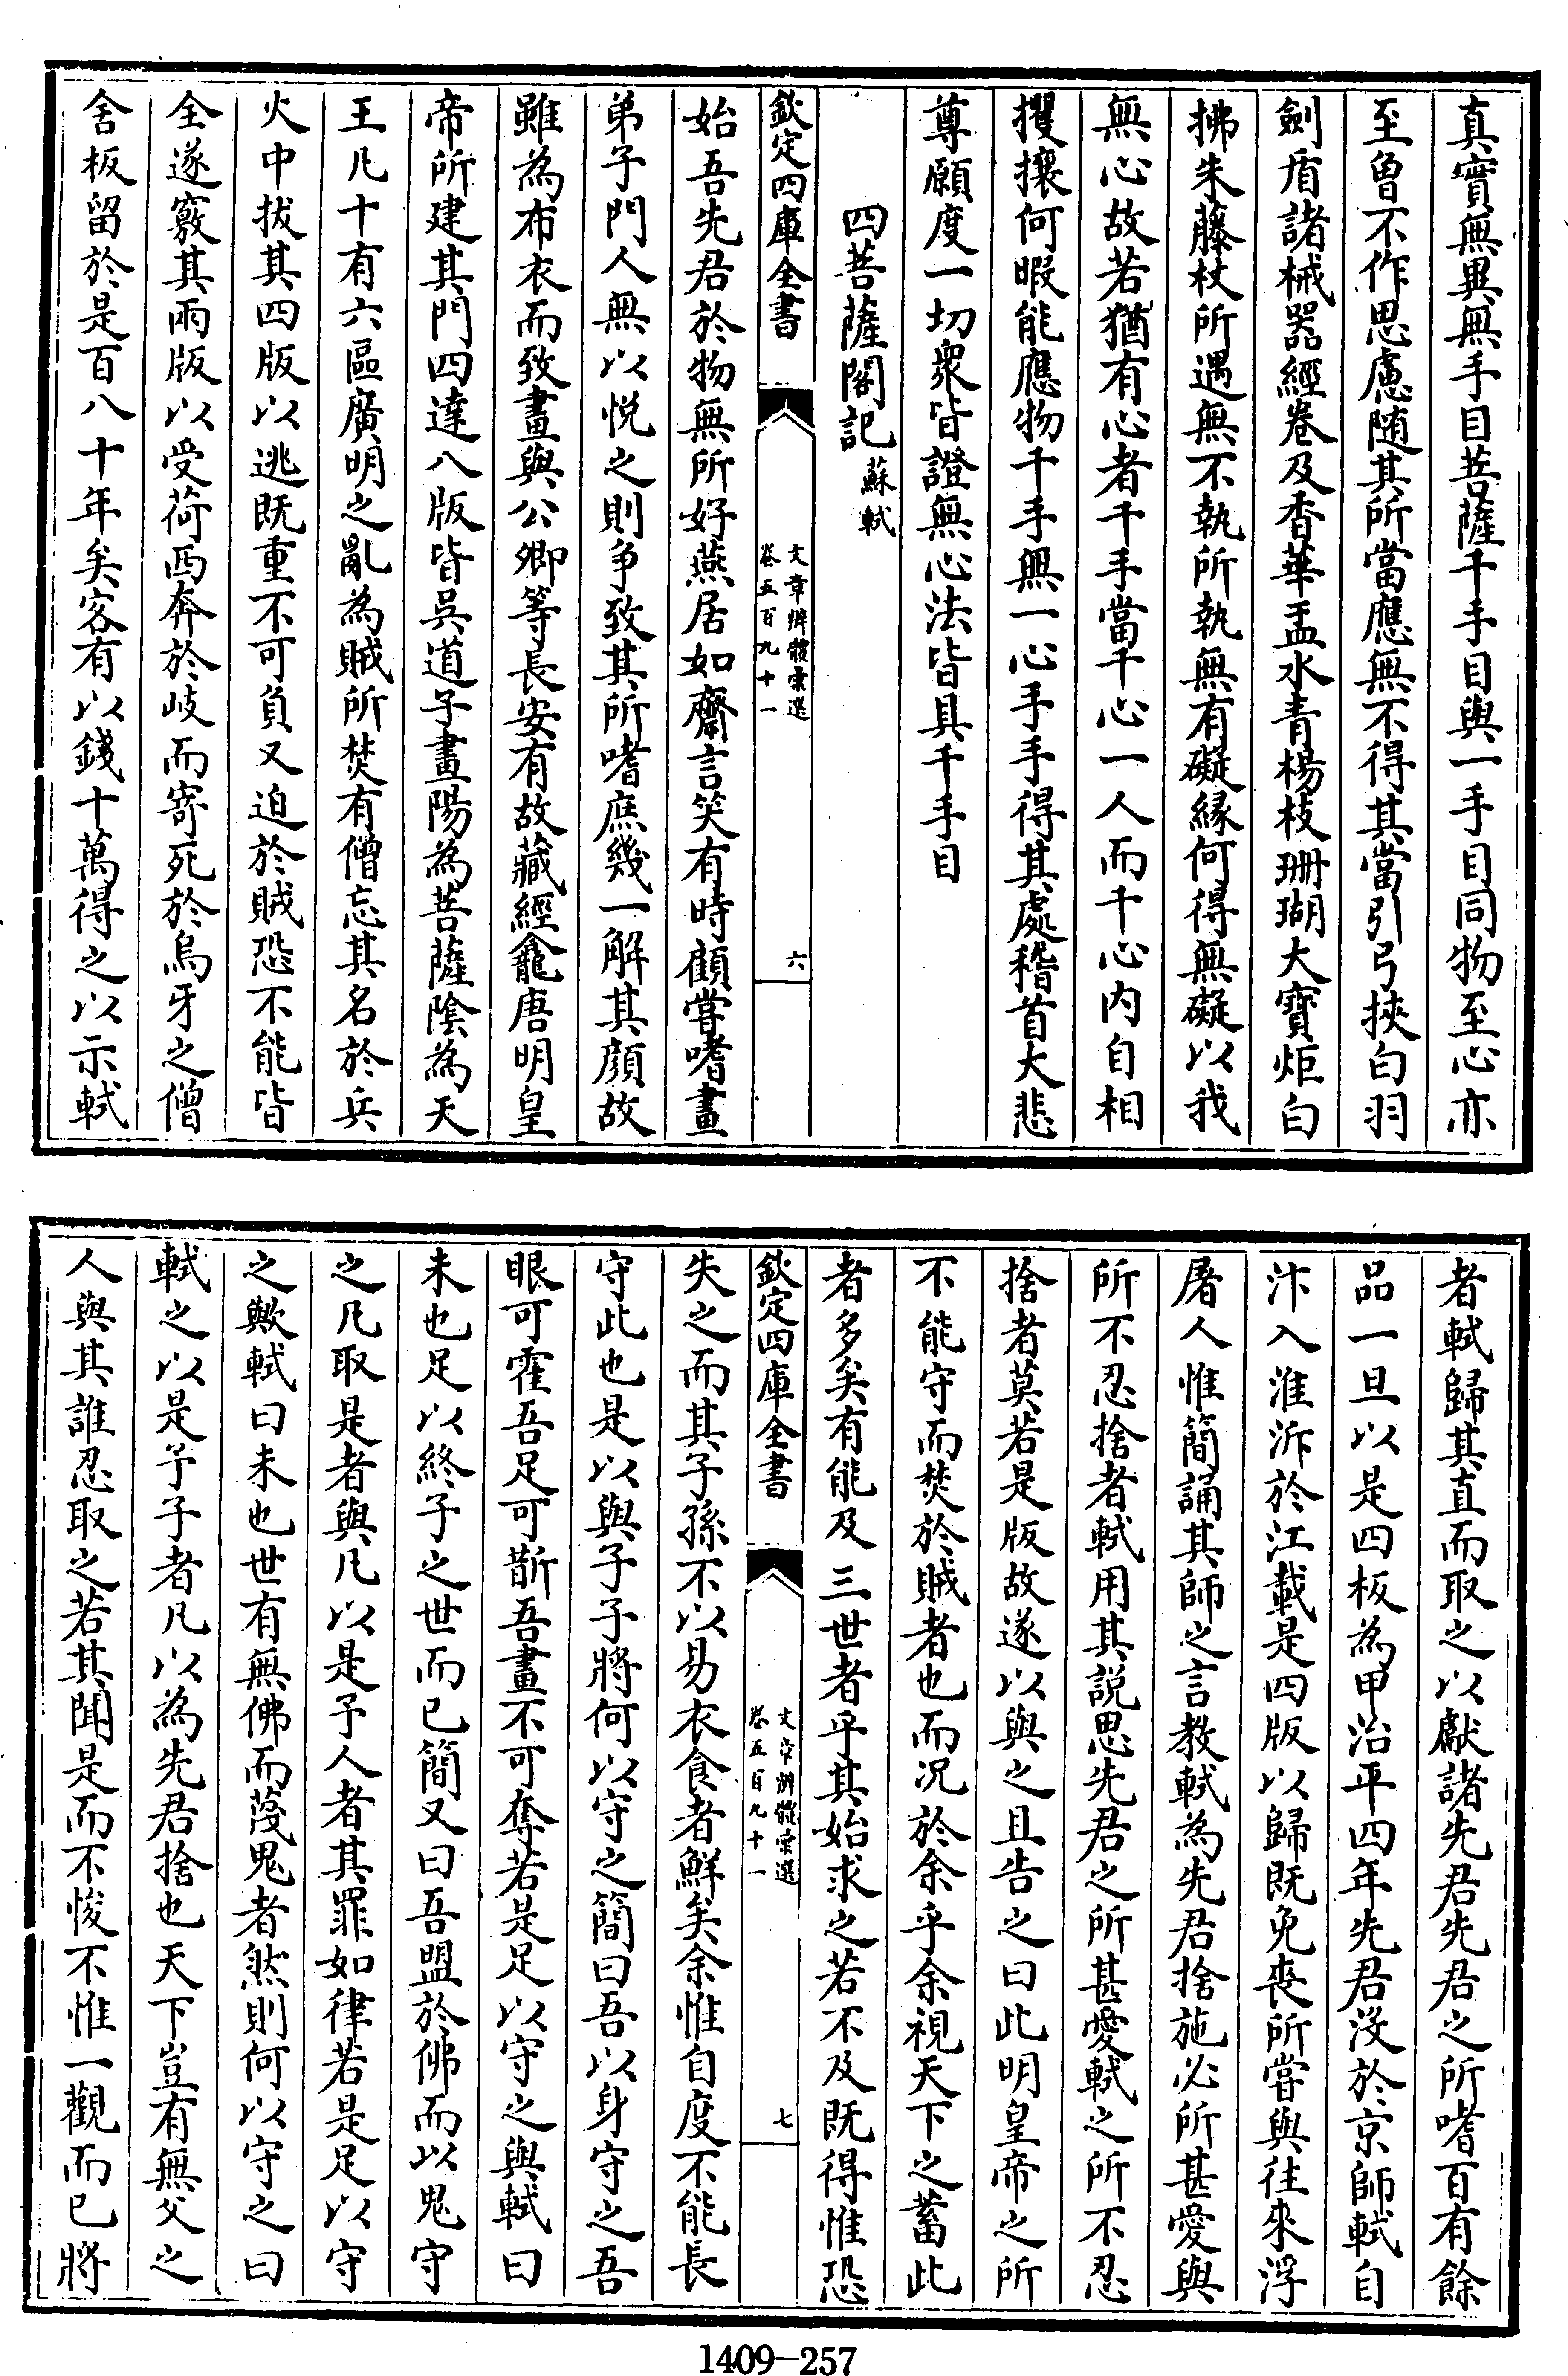 真實無異無手目菩薩千手目與一手目同物至心亦
至曾不作思慮随其所當應無不得其當引弓挾白羽
劍盾諸械器經卷及香華盂水青楊枝珊瑚大寶炬白
拂朱藤杖所遇無不執所執無有礙緣何得無礙以我
無心故若猶有心者千手當千心一人而千心内自相
攫攘何暇能應物千手無一心手手得其處稽首大悲
尊願度一切衆皆證無心法皆具千手目
四菩薩閣記 蘇軾
欽定四庫全書 文章辨體彙選 卷五百九十一 六
始吾先君於物無所好燕居如齋言笑有時顧嘗嗜畫
弟子門人無以悦之則争致其所嗜庶幾一解其顔故
雖為布衣而致畫與公卿等長安有故藏經龕唐明皇
帝所建其門四達八版皆吳道子畫陽為菩薩陰為天
王凡十有六區廣明之亂為賊所焚有僧忘其名於兵
火中拔其四版以逃既重不可負又迫於賊恐不能皆
全遂竅其兩版以受荷西奔於岐而寄死於烏牙之僧
舍板留於是百八十年矣客有以錢十萬得之以示軾
者軾歸其直而取之以獻諸先君先君之所嗜百有餘
品一旦以是四板為甲治平四年先君沒於京師軾自
汴入淮泝於江載是四版以歸既免喪所嘗與往來浮
屠人惟簡誦其師之言教軾為先君捨施必所甚愛與
所不忍捨者軾用其説思先君之所甚愛軾之所不忍
捨者莫若是版故遂以與之且告之曰此明皇帝之所
不能守而焚於賊者也而况於余乎余視天下之蓄此
者多矣有能及三世者乎其始求之若不及既得惟恐
欽定四庫全書 文章辨體彙選 卷五百九十一 七
失之而其子孫不以易衣食者鮮矣余惟自度不能長
守此也是以與子子將何以守之簡曰吾以身守之吾
眼可霍吾足可斮吾畫不可奪若是足以守之與軾曰
未也足以終子之世而已簡又曰吾盟於佛而以鬼守
之凡取是者與凡以是予人者其罪如律若是足以守
之歟軾曰未也世有無佛而蔑鬼者然則何以守之曰
軾之以是予子者凡以為先君捨也天下豈有無父之
人與其誰忍取之若其聞是而不悛不惟一觀而已將
1409-257